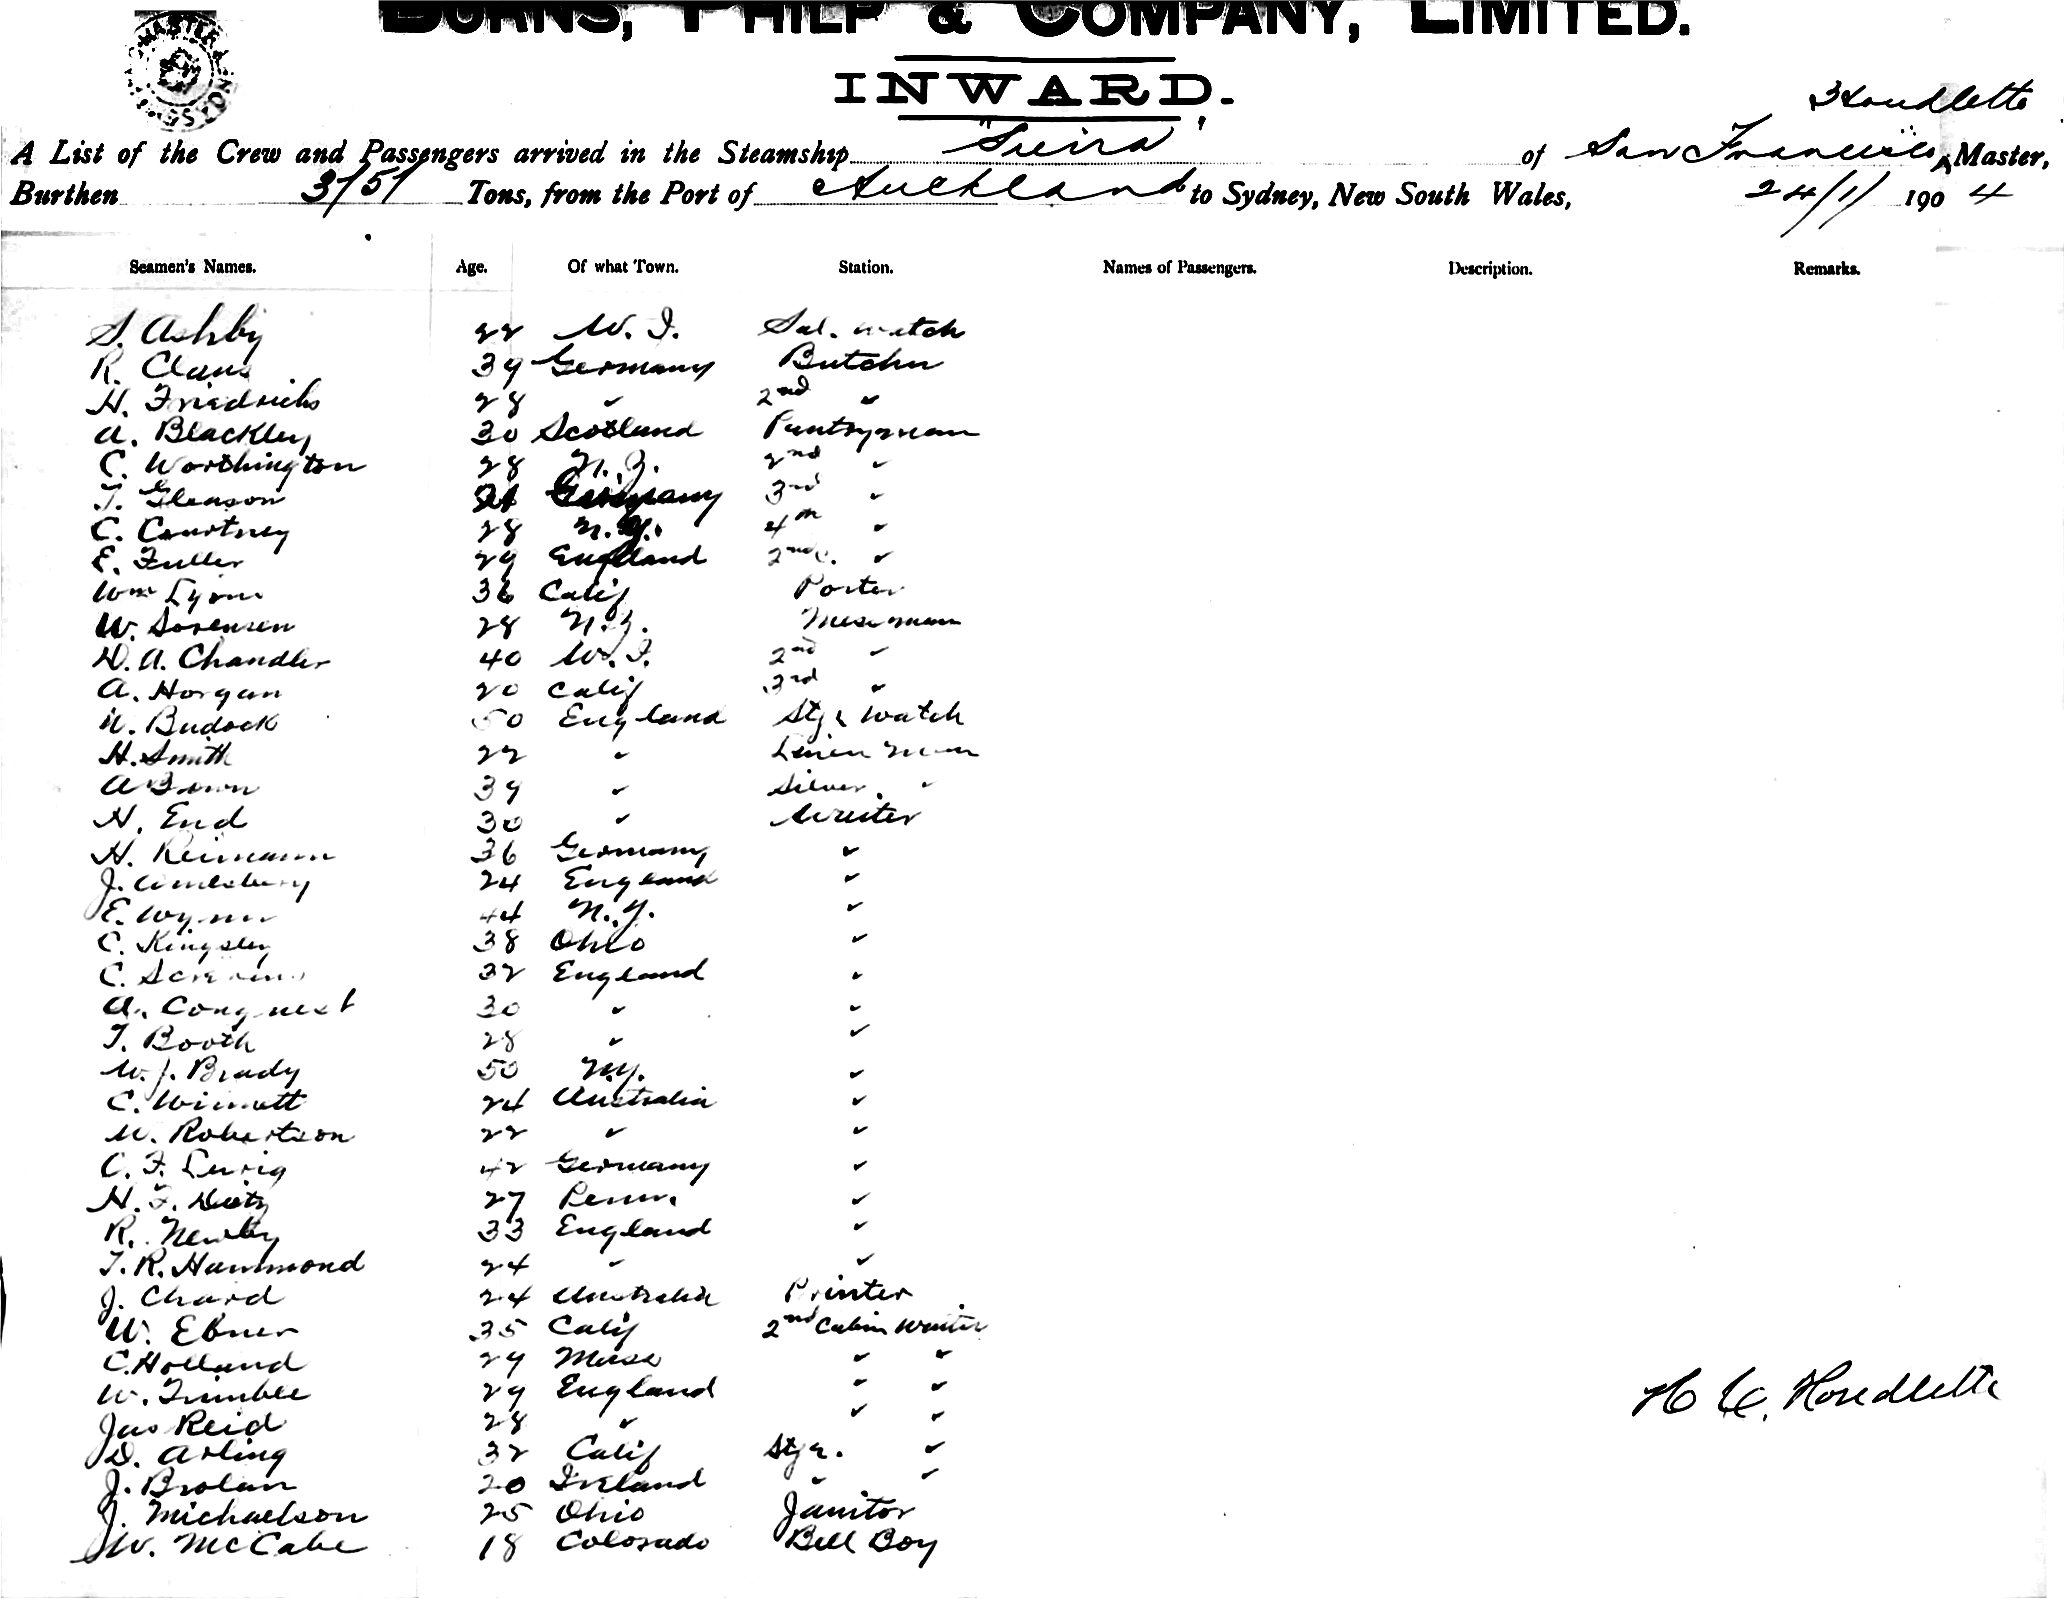 BURNS, PHILP & COMPANY, LIMITED.
INWARD.
Houdlette
A List of the Crew and Passengers arrived in the Steamship "Sierra" of San Francisco, Master,
Burthen 3151 Tons, from the Port of Auckland to Sydney, New South Wales, 24/1/ 1904
Seamen's Names. Age. Of what Town. Station. Names of Passengers. Description. Remarks.
S. Ashby 22 W. I. Sal. watch
R. Claus 39 Germany Butcher
H. Friedrichs 28 " 2nd "
A. Blackley 30 Scotland Pantryman
C. Worthington 28 N. Z. 2nd "
T. Gleason 21 Germany 3rd "
C. Courtney 28 N. Y. 4th "
E. Fuller 29 England 2nd C. "
Wm Lyons 36 Calif Porter
W. Sorensen 28 N. Z. Messman
D. A. Chandler 40 W. I. 2nd "
A. Horgan 20 Calif 3rd "
W. Budock 50 England Stge Watch
H. Smith 22 " Linen man
A Bown 39 " Silver "
H. End 30 " Waiter
H. Reimann 36 Germany "
J. Amesbury 24 England "
E. Wynn 44 N. Y. "
C. Kingsley 38 Ohio "
C. 32 England "
A. Conquest 30 " "
T. Booth 28 " "
W. J. Brady 50 N.Y. "
C. 24 Australia "
W. Robertson 22 " "
C. F. 42 Germany "
H. F. Dietz 27 Penn. "
R. Newby 33 England "
T. R. Hammond 24 " "
J. Chard 24 Australia Printer
W. Ebner 35 Calif 2nd Cabin Waiter
C. Holland 29 Mass " "
W. Trimble 29 England " "
Jas Reid 28 " " "
D. Arling 32 Calif Stge. "
J. Brolan 20 Ireland " "
J. Michaelson 25 Ohio Janitor
W. McCabe 18 Colorado Bell Boy
H C. Houdlette